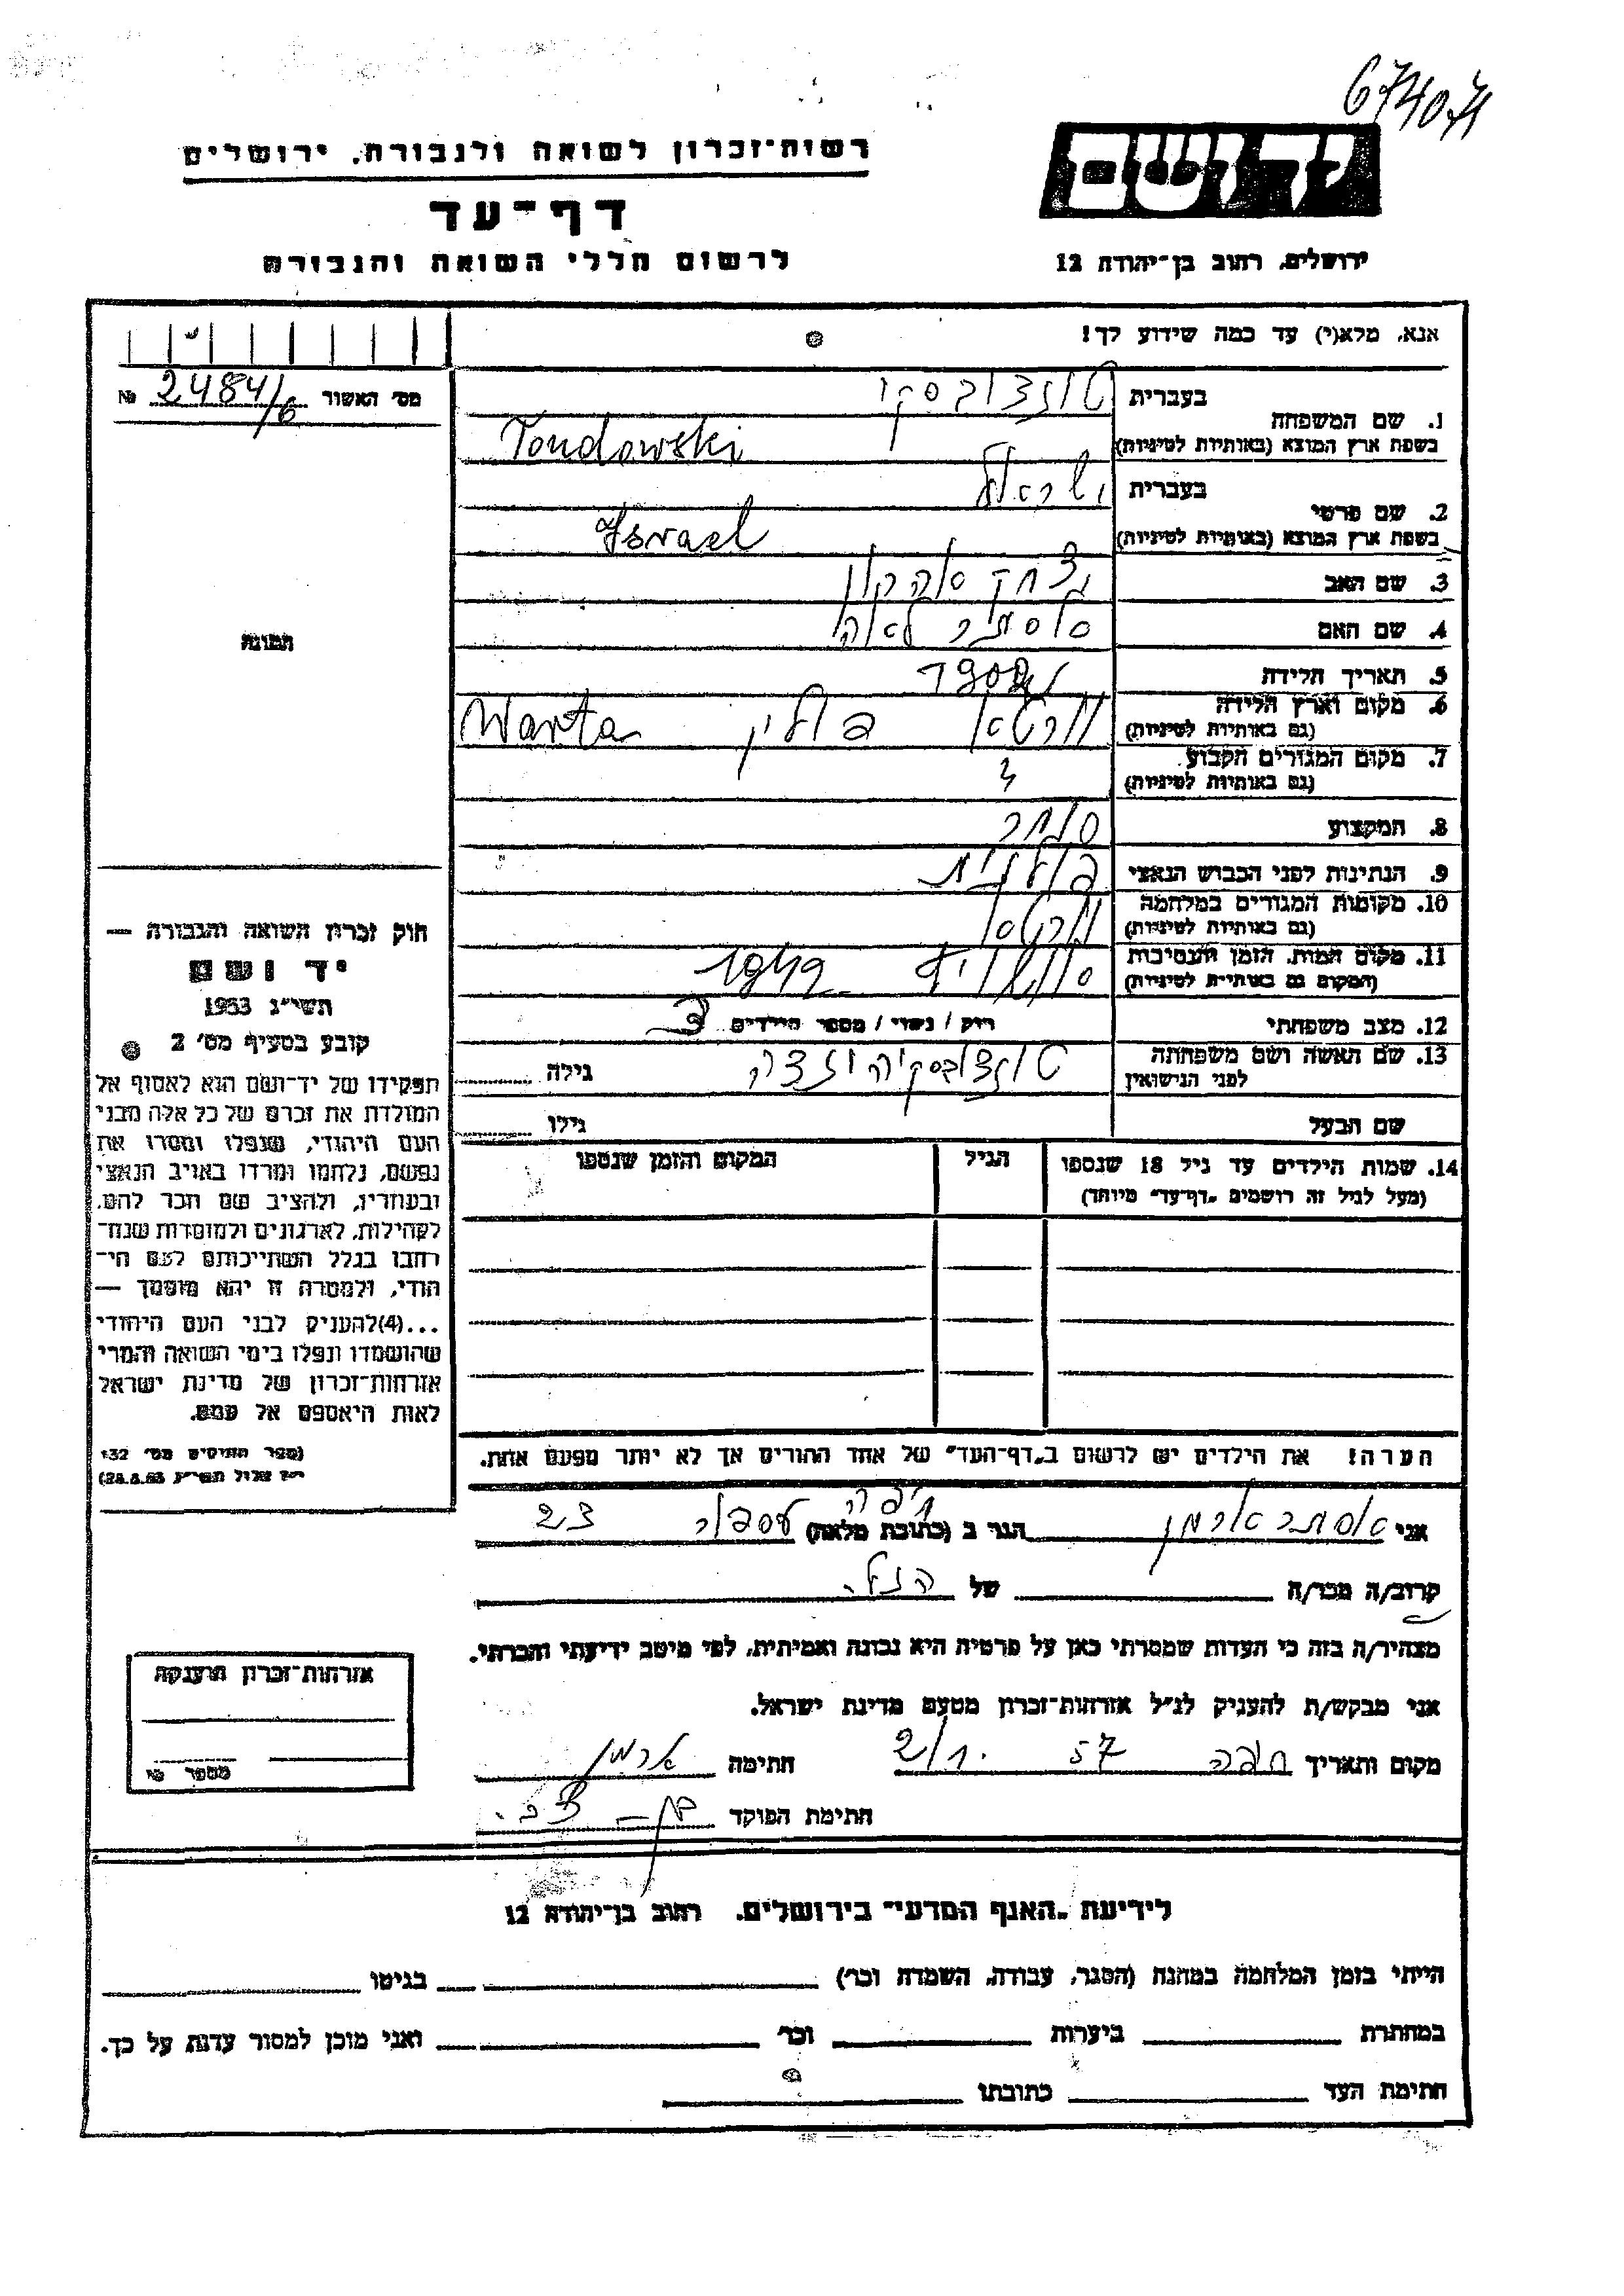 67404
רשות־זכרון לשואה ולגבורה, ירושלים
יד ושם
דף־עד
לרשום חללי השואה והגבורה
ירושלים, רחוב בן־יהודה 12
אנא, מלא(י) עד כמה שידוע לך!
מס׳ האשור 2484/6 №
1. שם המשפחה
בעברית
בשפת ארץ המוצא (באותיות לטיניות) Tondowski
2. שם פרטי
בעברית ישראל
בשפת ארץ המוצא (באותיות לטיניות) Israel
3. שם האב יצחק
4. שם האם לאה
תמונה
5. תאריך הלידה
6. מקום וארץ הלידה
(גם באותיות לטיניות) ורטא פולין Warta
7. מקום המגורים הקבוע
(גם באותיות לטיניות)
8. המקצוע סוחר
9. הנתינות לפני הכבוש הנאצי פולנית
10. מקומות המגורים במלחמה
(גם באותיות לטיניות)
11. מקום המות, הזמן והנסיבות
(המקום גם באותיות לטיניות)
12. מצב משפחתי רווק / נשוי / מספר הילדים
13. שם האשה ושם משפחתה
לפני הנישואין גילה
שם הבעל גילו
14. שמות הילדים עד גיל 18 שנספו הגיל המקום והזמן שנספו
(מעל לגיל זה רושמים „דף־עד״ מיוחד)
חוק זכרון השואה והגבורה —
יד ושם
תשי״ג 1953
קובע בסעיף מס׳ 2
תפקידו של יד־ושם הוא לאסוף אל
המולדת את זכרם של כל אלה מבני
העם היהודי, שנפלו ומסרו את
נפשם, נלחמו ומרדו באויב הנאצי
ובעוזריו, ולהציב שם וזכר להם,
לקהילות, לארגונים ולמוסדות שנח־
רבו בגלל השתייכותם לעם הי־
הודי, ולמטרה זו יהא מוסמך —
...(4)להעניק לבני העם היהודי
שהושמדו ונפלו בימי השואה והמרי
אזרחות־זכרון של מדינת ישראל
לאות היאספם אל עמם.
(ספר החוקים מס׳ 132
הערה! את הילדים יש לרשום ב„דף־העד״ של אחד ההורים אך לא יותר מפעם אחת.
אני אסתר ארמן הגר ב (כתובת מלאה) חיפה
קרוב/ה מכר/ה של הנ״ל
מצהיר/ה בזה כי העדות שמסרתי כאן על פרטיה היא נכונה ואמיתית, לפי מיטב ידיעתי והכרתי.
אני מבקש/ת להעניק לנ״ל אזרחות־זכרון מטעם מדינת ישראל.
מקום ותאריך חיפה 2/1. 57 חתימה ארמן
חתימת הפוקד
אזרחות־זכרון הוענקה
מספר
לידיעת „האגף המדעי״ בירושלים, רחוב בן־יהודה 12
הייתי בזמן המלחמה במחנה (הסגר, עבודה, השמדה וכר׳) בגיטו
במחתרת ביערות וכר׳ ואני מוכן למסור עדות על כך.
חתימת העד כתובתו